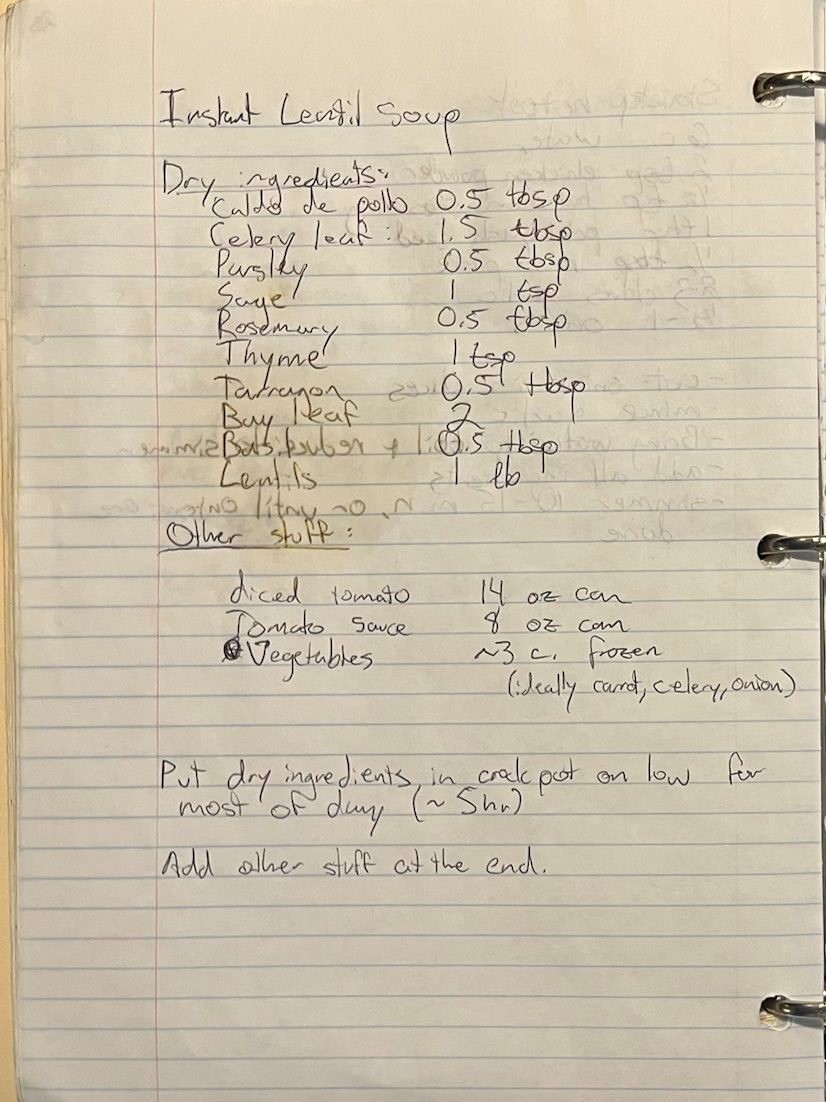 Instant Lentil Soup
Dry ingredients:
Caldo de pollo 0.5 tbsp
Celery leaf: 1.5 tbsp
Parsley 0.5 tbsp
Sage 1 tsp
Rosemary 0.5 tbsp
Thyme 1 tsp
Tarragon 0.5 tbsp
Bay leaf 2
Basil 0.5 tbsp
Lentils 1 lb
Other stuff:
diced tomato 14 oz can
Tomato sauce 8 oz can
Vegetables ~3 c. frozen
(ideally carrot, celery, onion)
Put dry ingredients in crock pot on low for
most of day (~ 5hr)
Add other stuff at the end.